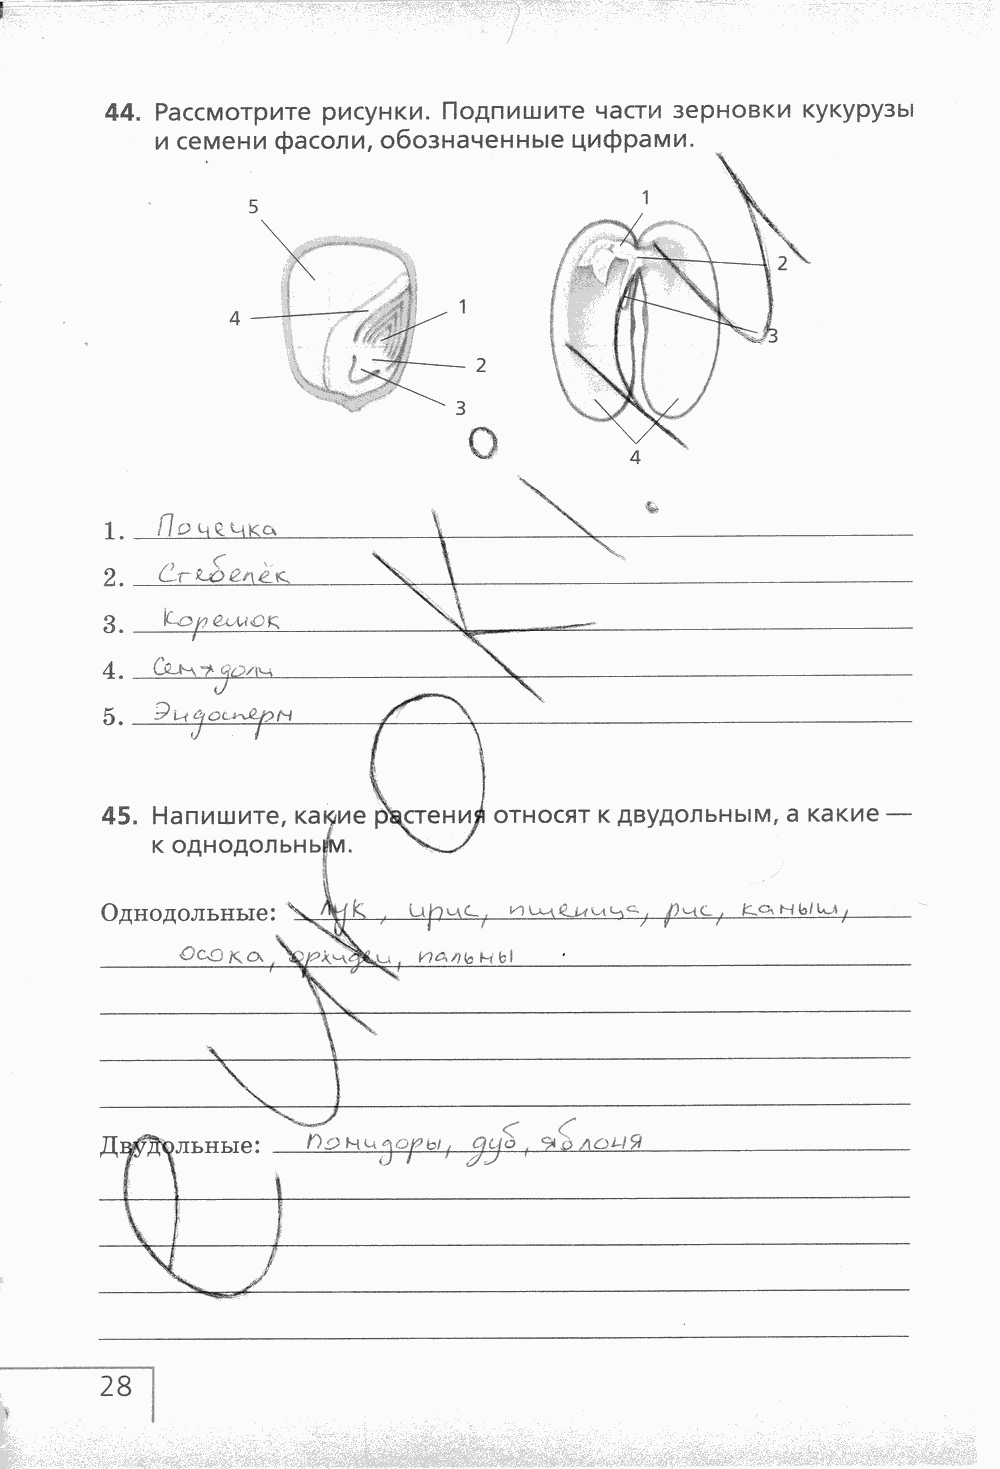 44. Рассмотрите рисунки. Подпишите части зерновки кукурузы
и семени фасоли, обозначенные цифрами.
5
4
1
2
3
1
2
3
4
1. Почечка
2. Стебелёк
3. Корешок
4. Семядоли
5. Эндосперм
45. Напишите, какие растения относят к двудольным, а какие —
к однодольным.
Однодольные: Лук, ирис, пшеница, рис, камыш,
осока, орхидеи, пальмы
Двудольные: помидоры, дуб, яблоня
28